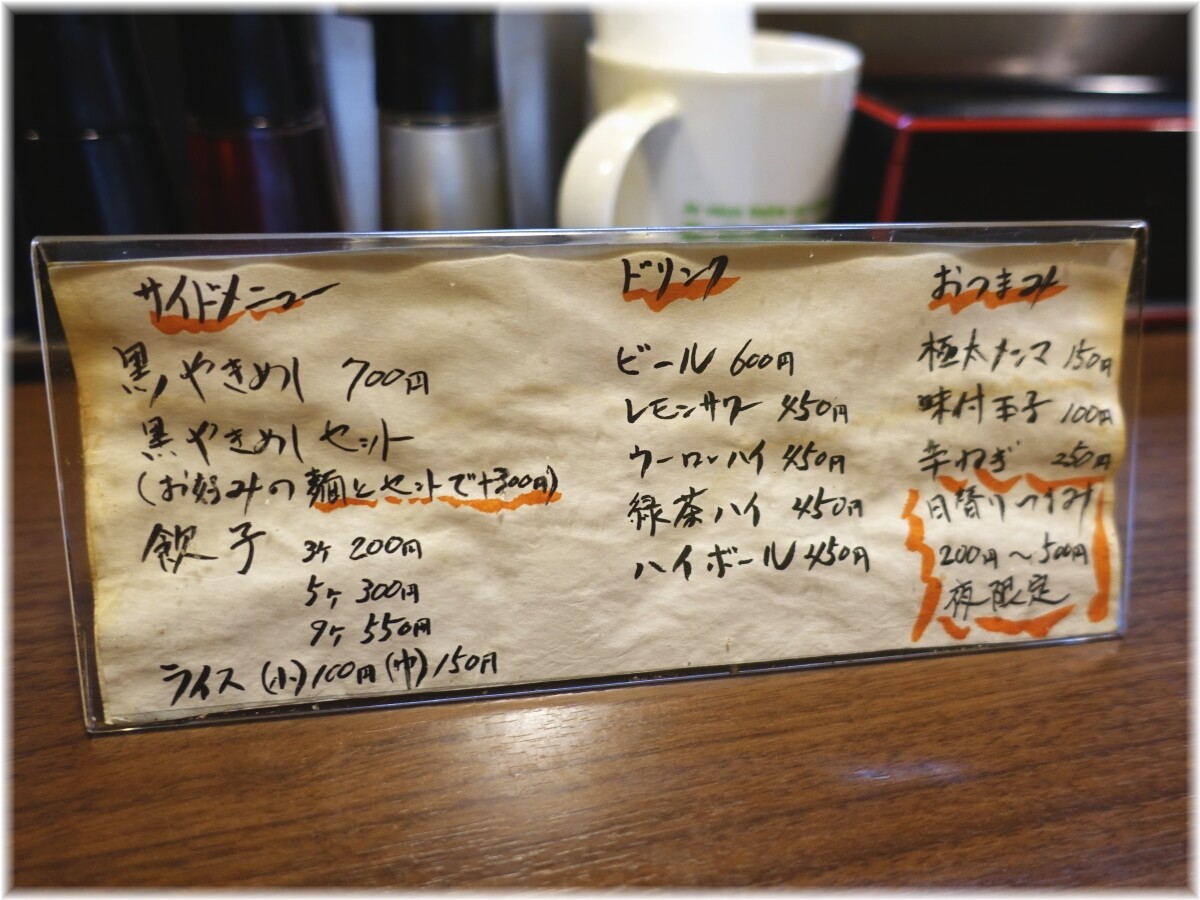 サイドメニュー
黒やきめし 700円
黒やきめしセット
(お好みの麺とセットで+300円)
餃子 3ケ 200円
5ケ 300円
9ケ 550円
ライス (小)100円 (中)150円
ドリンク
ビール 600円
レモンサワー 450円
ウーロンハイ 450円
緑茶ハイ 450円
ハイボール 450円
おつまみ
極太メンマ 150円
味付玉子 100円
辛ねぎ 250円
日替りつまみ
200円〜500円
夜限定